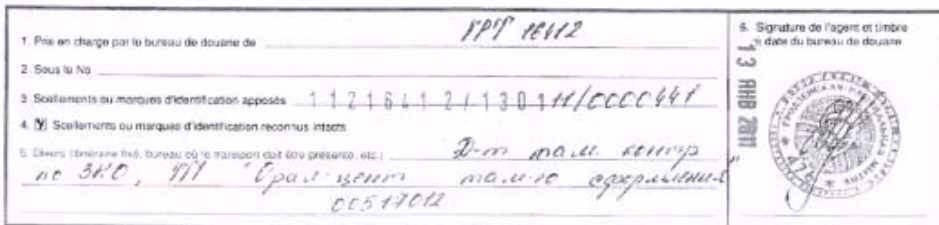 1. Pris en charge par le bureau de douane de ГРТ 16412
2. Sous le No
3. Scellements ou marques d'identification apposés 11216412/130111/0000441
4. Scellements ou marques d'identification reconnus intacts
5. Divers (itinéraire fixé, bureau où le transport doit être présenté, etc.) Д-т там. контр
по ЗКО, ТП "Орал-центр там-го оформления"
00517012
6. Signature de l'agent et timbre
à date du bureau de douane
13 ЯНВ 2011